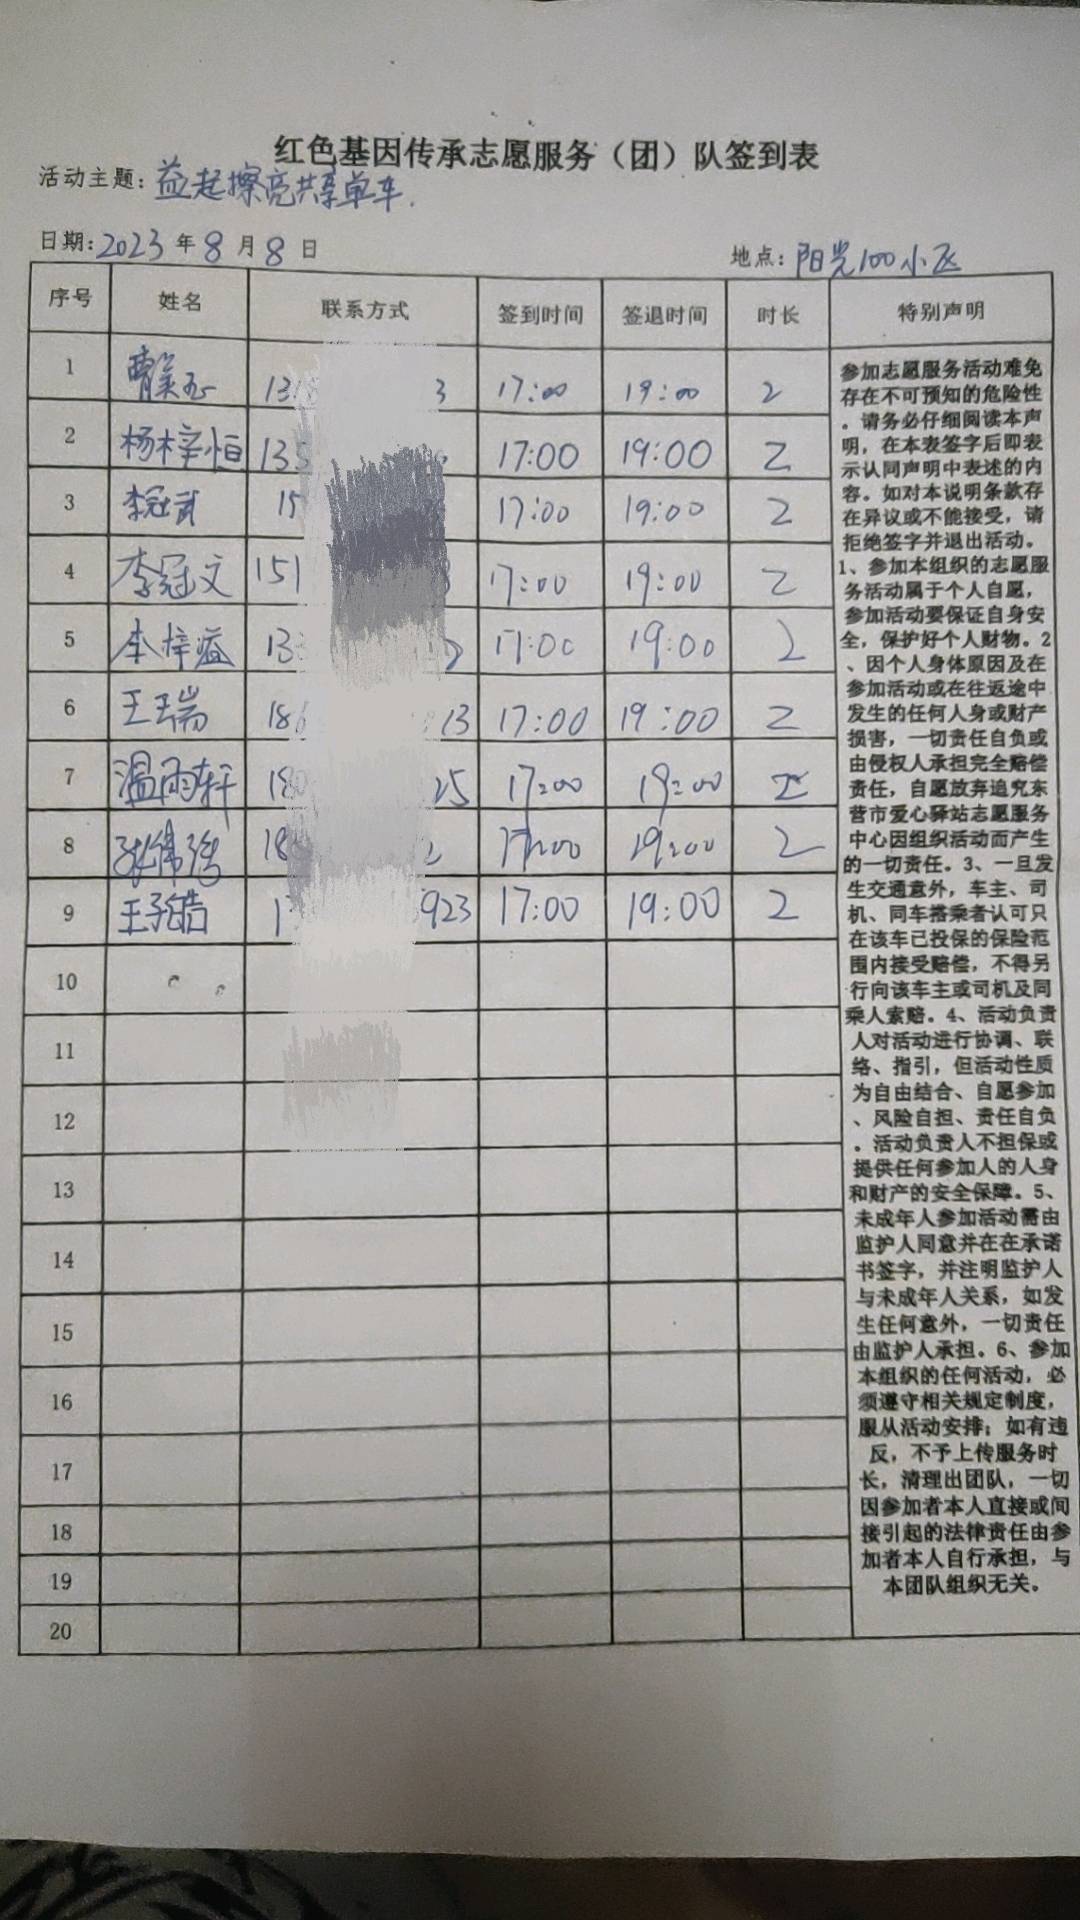 红色基因传承志愿服务（团）队签到表
活动主题：益起擦亮共享单车.
日期：2023年8月8日 地点：阳光100小飞
序号 姓名 联系方式 签到时间 签退时间 时长 特别声明
1 17:00 19:00 2
2 杨梓恒 135 17:00 19:00 2
3 李冠武 15 17:00 19:00 2
4 李冠文 151 17:00 19:00 2
5 李梓溢 13 17:00 19:00 2
6 王瑞 186 13 17:00 19:00 2
7 温雨轩 180 25 17:00 19:00 2
8 18 2 17:00 19:00 2
9 王子皓 1 923 17:00 19:00 2
10
11
12
13
14
15
16
17
18
19
20
参加志愿服务活动难免
存在不可预知的危险性
。请务必仔细阅读本声
明，在本表签字后即表
示认同声明中表述的内
容。如对本说明条款存
在异议或不能接受，请
拒绝签字并退出活动。
1、参加本组织的志愿服
务活动属于个人自愿，
参加活动要保证自身安
全，保护好个人财物。2
、因个人身体原因及在
参加活动或在往返途中
发生的任何人身或财产
损害，一切责任自负或
由侵权人承担完全赔偿
责任，自愿放弃追究东
营市爱心驿站志愿服务
中心因组织活动而产生
的一切责任。3、一旦发
生交通意外，车主、司
机、同车搭乘者认可只
在该车已投保的保险范
围内接受赔偿，不得另
行向该车主或司机及同
乘人索赔。4、活动负责
人对活动进行协调、联
络、指引，但活动性质
为自由结合、自愿参加
、风险自担、责任自负
。活动负责人不担保或
提供任何参加人的人身
和财产的安全保障。5、
未成年人参加活动需由
监护人同意并在在承诺
书签字，并注明监护人
与未成年人关系，如发
生任何意外，一切责任
由监护人承担。6、参加
本组织的任何活动，必
须遵守相关规定制度，
服从活动安排；如有违
反，不予上传服务时
长，清理出团队，一切
因参加者本人直接或间
接引起的法律责任由参
加者本人自行承担，与
本团队组织无关。